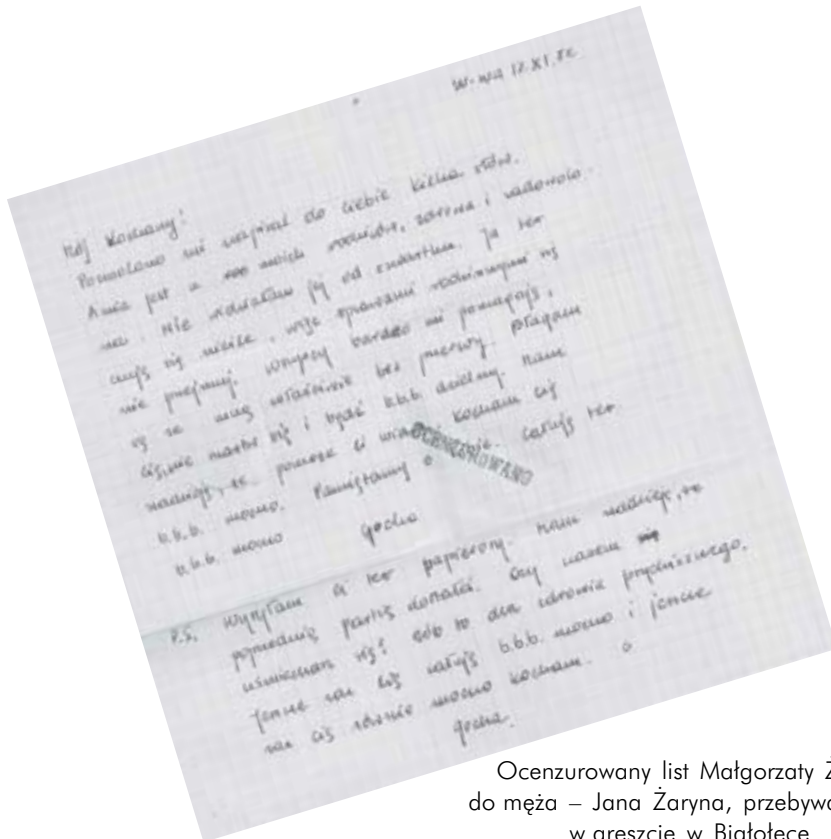 W-wa 12.XI.82
Mój Kochany!
Pozwolono mi napisać do Ciebie kilka słów.
Ania jest u moich rodziców, zdrowa i zadowolo-
na. Nie widziałam jej od czwartku. Ja też
czuję się nieźle, więc sprawami rodzinnymi się
nie przejmuj. Wszyscy bardzo mi pomagają,
są ze mną właściwie bez przerwy. Błagam
Cię, nie martw się i bądź b.b.b. dzielny. Mam
nadzieję, że pomoże Ci wiara. Kocham Cię
b.b.b. mocno. Pamiętamy. Całuję też
b.b.b. mocno Gocha
OCENZUROWANO
P.S. Wysyłam Ci też papierosy. Mam nadzieję, że
poprzednią partię dostałeś. Czy czasem
uśmiechasz się? Rób to dla zdrowia psychicznego.
Jeszcze raz Cię całuję b.b.b. mocno i jeszcze
raz Cię równie mocno kocham.
Gocha.
Ocenzurowany list Małgorzaty Ż
do męża – Jana Żaryna, przebywa
w areszcie w Białołęce